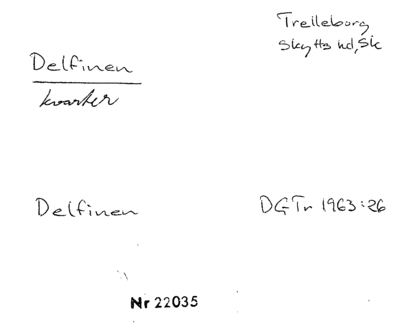 Trelleborg
Skytts hd, Sk
Delfinen
kvarter
Delfinen
DGTr 1963:26
Nr 22035